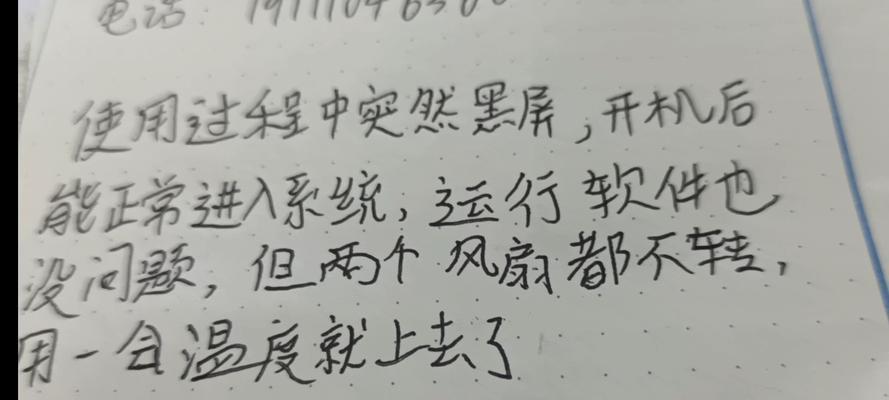 电话:
使用过程中突然黑屏,开机后
能正常进入系统,运行软件也
没问题,但两个风扇都不转,
用一会温度就上去了